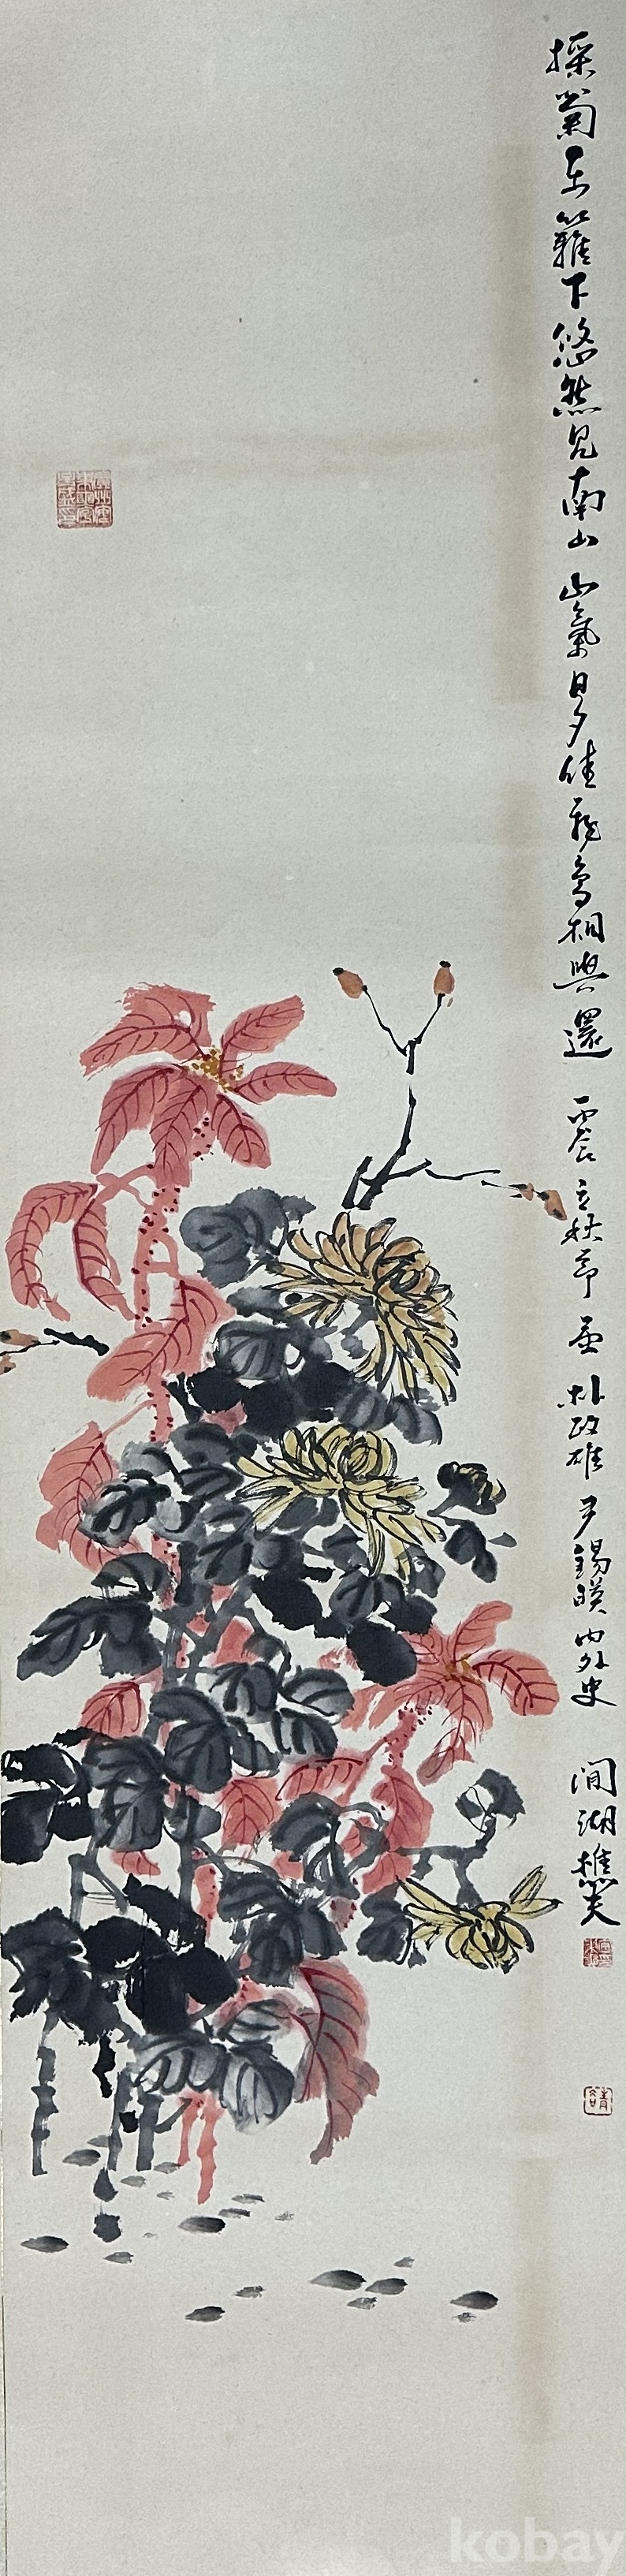 採菊東籬下悠然見南山 山氣日夕佳 飛鳥相與還 丙辰立秋節 為 朴政雄 尹錫暎 內外史 澗湖樵夫
kobay